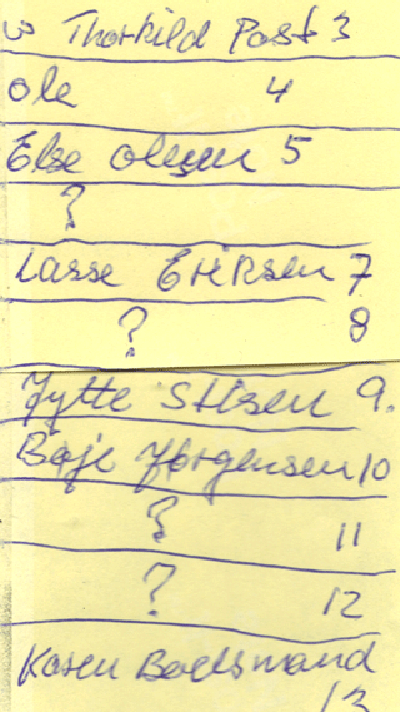 Thorkild Post 3
Ole 4
Else Olesen 5
?
Lasse Eriksen 7
? 8
Jytte 9.
Børge Jørgensen 10
? 11
? 12
Karen
13